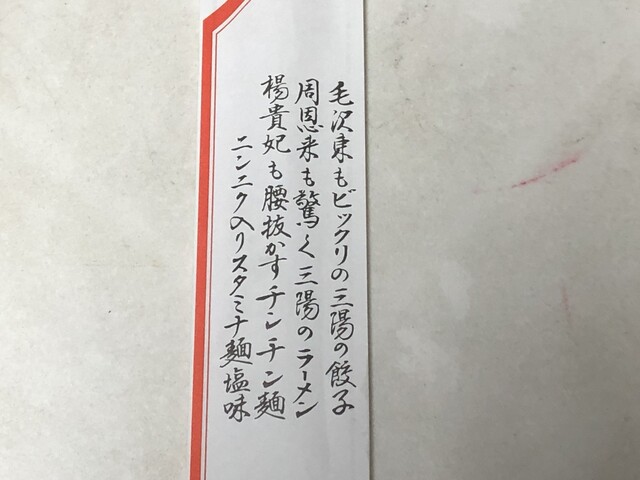 毛沢東もビックリの三陽の餃子
周恩来も驚く三陽のラーメン
楊貴妃も腰抜かすチンチン麺
ニンニク入りスタミナ麺塩味